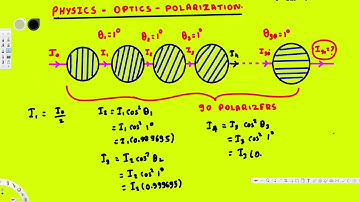 PHYSICS - OPTICS - POLARIZATION.
θ₁=1° θ₂=1° θ₃=1° θ₉₀=1°
I₀ I₁ I₂ I₃ I₄ I₉₀=?
90 POLARIZERS
I₁ = I₀/2
I₂ = I₁cos²θ₁
= I₁cos² 1°
= I₁(0.999695)
I₃ = I₂cos²θ₂
= I₂cos² 1°
= I₂(0.999695)
I₄ = I₃cos²θ₃
= I₃cos² 1°
= I₃(0.